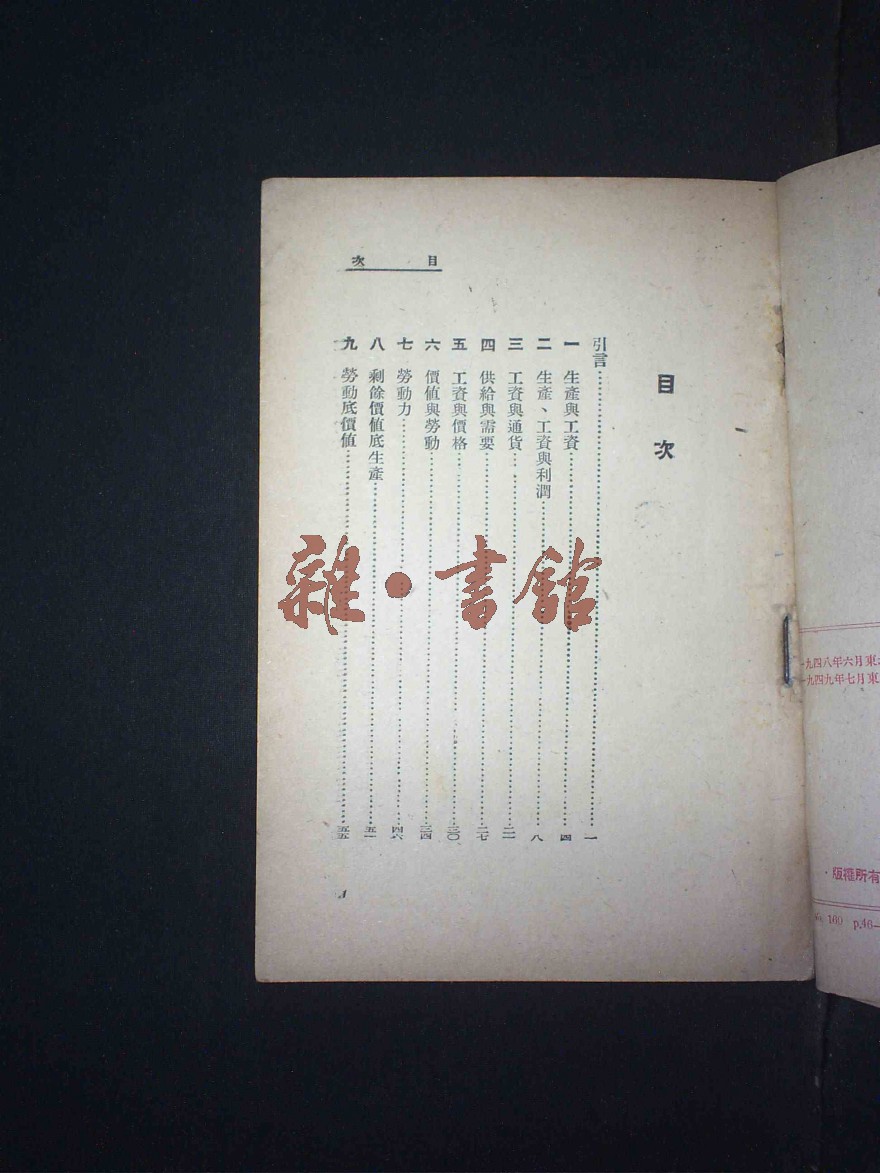 目次
目次
引言 一
一 生產與工資 四
二 生產、工資與利潤 八
三 工資與通貨 二一
四 供給與需要 二七
五 工資與價格 三〇
六 價値與勞動 三四
七 勞動力 四六
八 剩餘價値底生產 五一
九 勞動底價値 五五
1
雜·書館
一九四八年六月東
一九四九年七月東
·版權所有
No. 100 p.40—